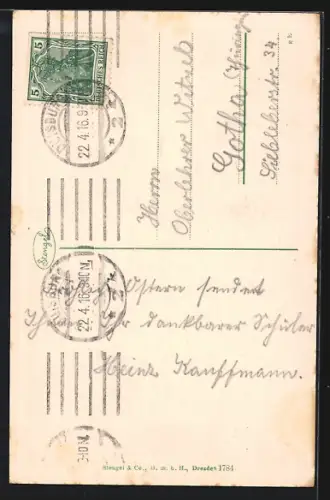 5 5
DEUTSCHES REICH
DUISBURG
22.4.16.9-10 N.
* 2 *
Herrn
Oberlehrer Witzel
Gotha
Siebleberstr. 34
Stengel
22.4.16.9-10 N.
* 2 *
Ostern sendet
Ihnen Ihr dankbarer Schüler
Heinz Kauffmann.
9-10 N.
Stengel & Co., G. m. b. H., Dresden 1784